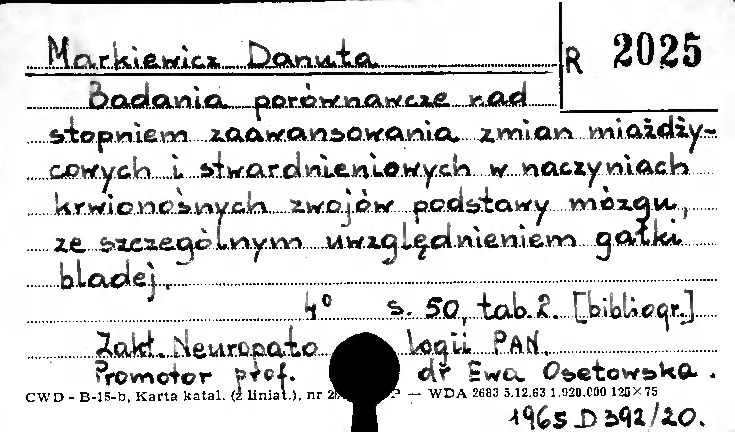 Markiewicz Danuta
R 2025
Badania porównawcze nad
stopniem zaawansowania zmian miażdży-
cowych i stwardnieniowych w naczyniach
krwionośnych zwojów podstawy mózgu,
ze szczególnym uwzględnieniem gałki
bladej.
4° s. 50, tab. 2. [bibliogr.]
Zakł. Neuropato logii PAN.
Promotor prof. dr Ewa Osetowska.
CWD - B-15-b, Karta katal. (z liniat.), nr — WDA 2683 5.12.63 1.920.000 125×75
1965 D 392/20.